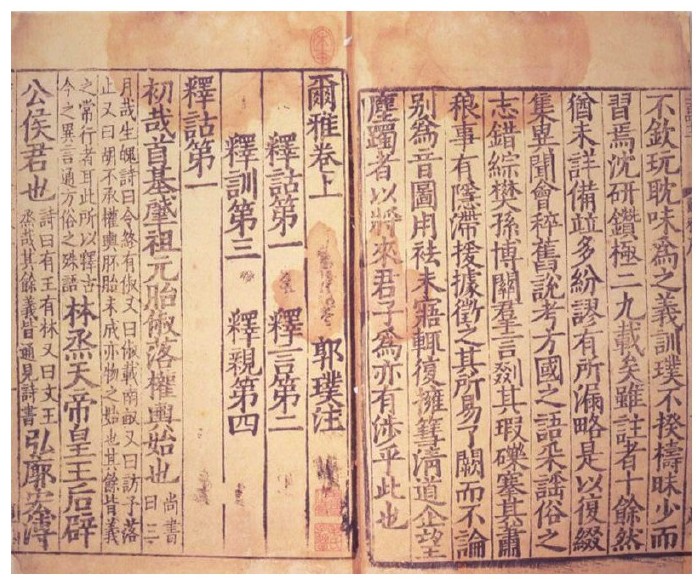 不欽玩耽味為之義訓璞不揆檮昧少而
習焉沈研鑽極二九載矣雖註者十餘然
猶未詳備竝多紛謬有所漏略是以復綴
集異聞會稡舊說考方國之語采謠俗之
志錯綜樊孫博關羣言剟其瑕礫搴其蕭
稂事有隱滯援據徵之其所易了闕而不論
別為音圖用袪未寤輒復擁篲清道企望
塵躅者以將來君子為亦有涉乎此也
爾雅卷上 郭璞注
釋詁第一 釋言第二
釋訓第三 釋親第四
釋詁第一
初哉首基肇祖元胎俶落權輿始也 尚書曰三
月哉生魄詩曰令終有俶又曰俶載南畝又曰訪予落
止又曰胡不承權輿胚胎未成亦物之始也其餘皆義
之常行者耳此所以釋古
今之異言通方俗之殊語 林烝天帝皇王后辟
公侯君也 詩曰有王有林又曰文王
烝哉其餘義皆通見詩書 弘廓宏溥